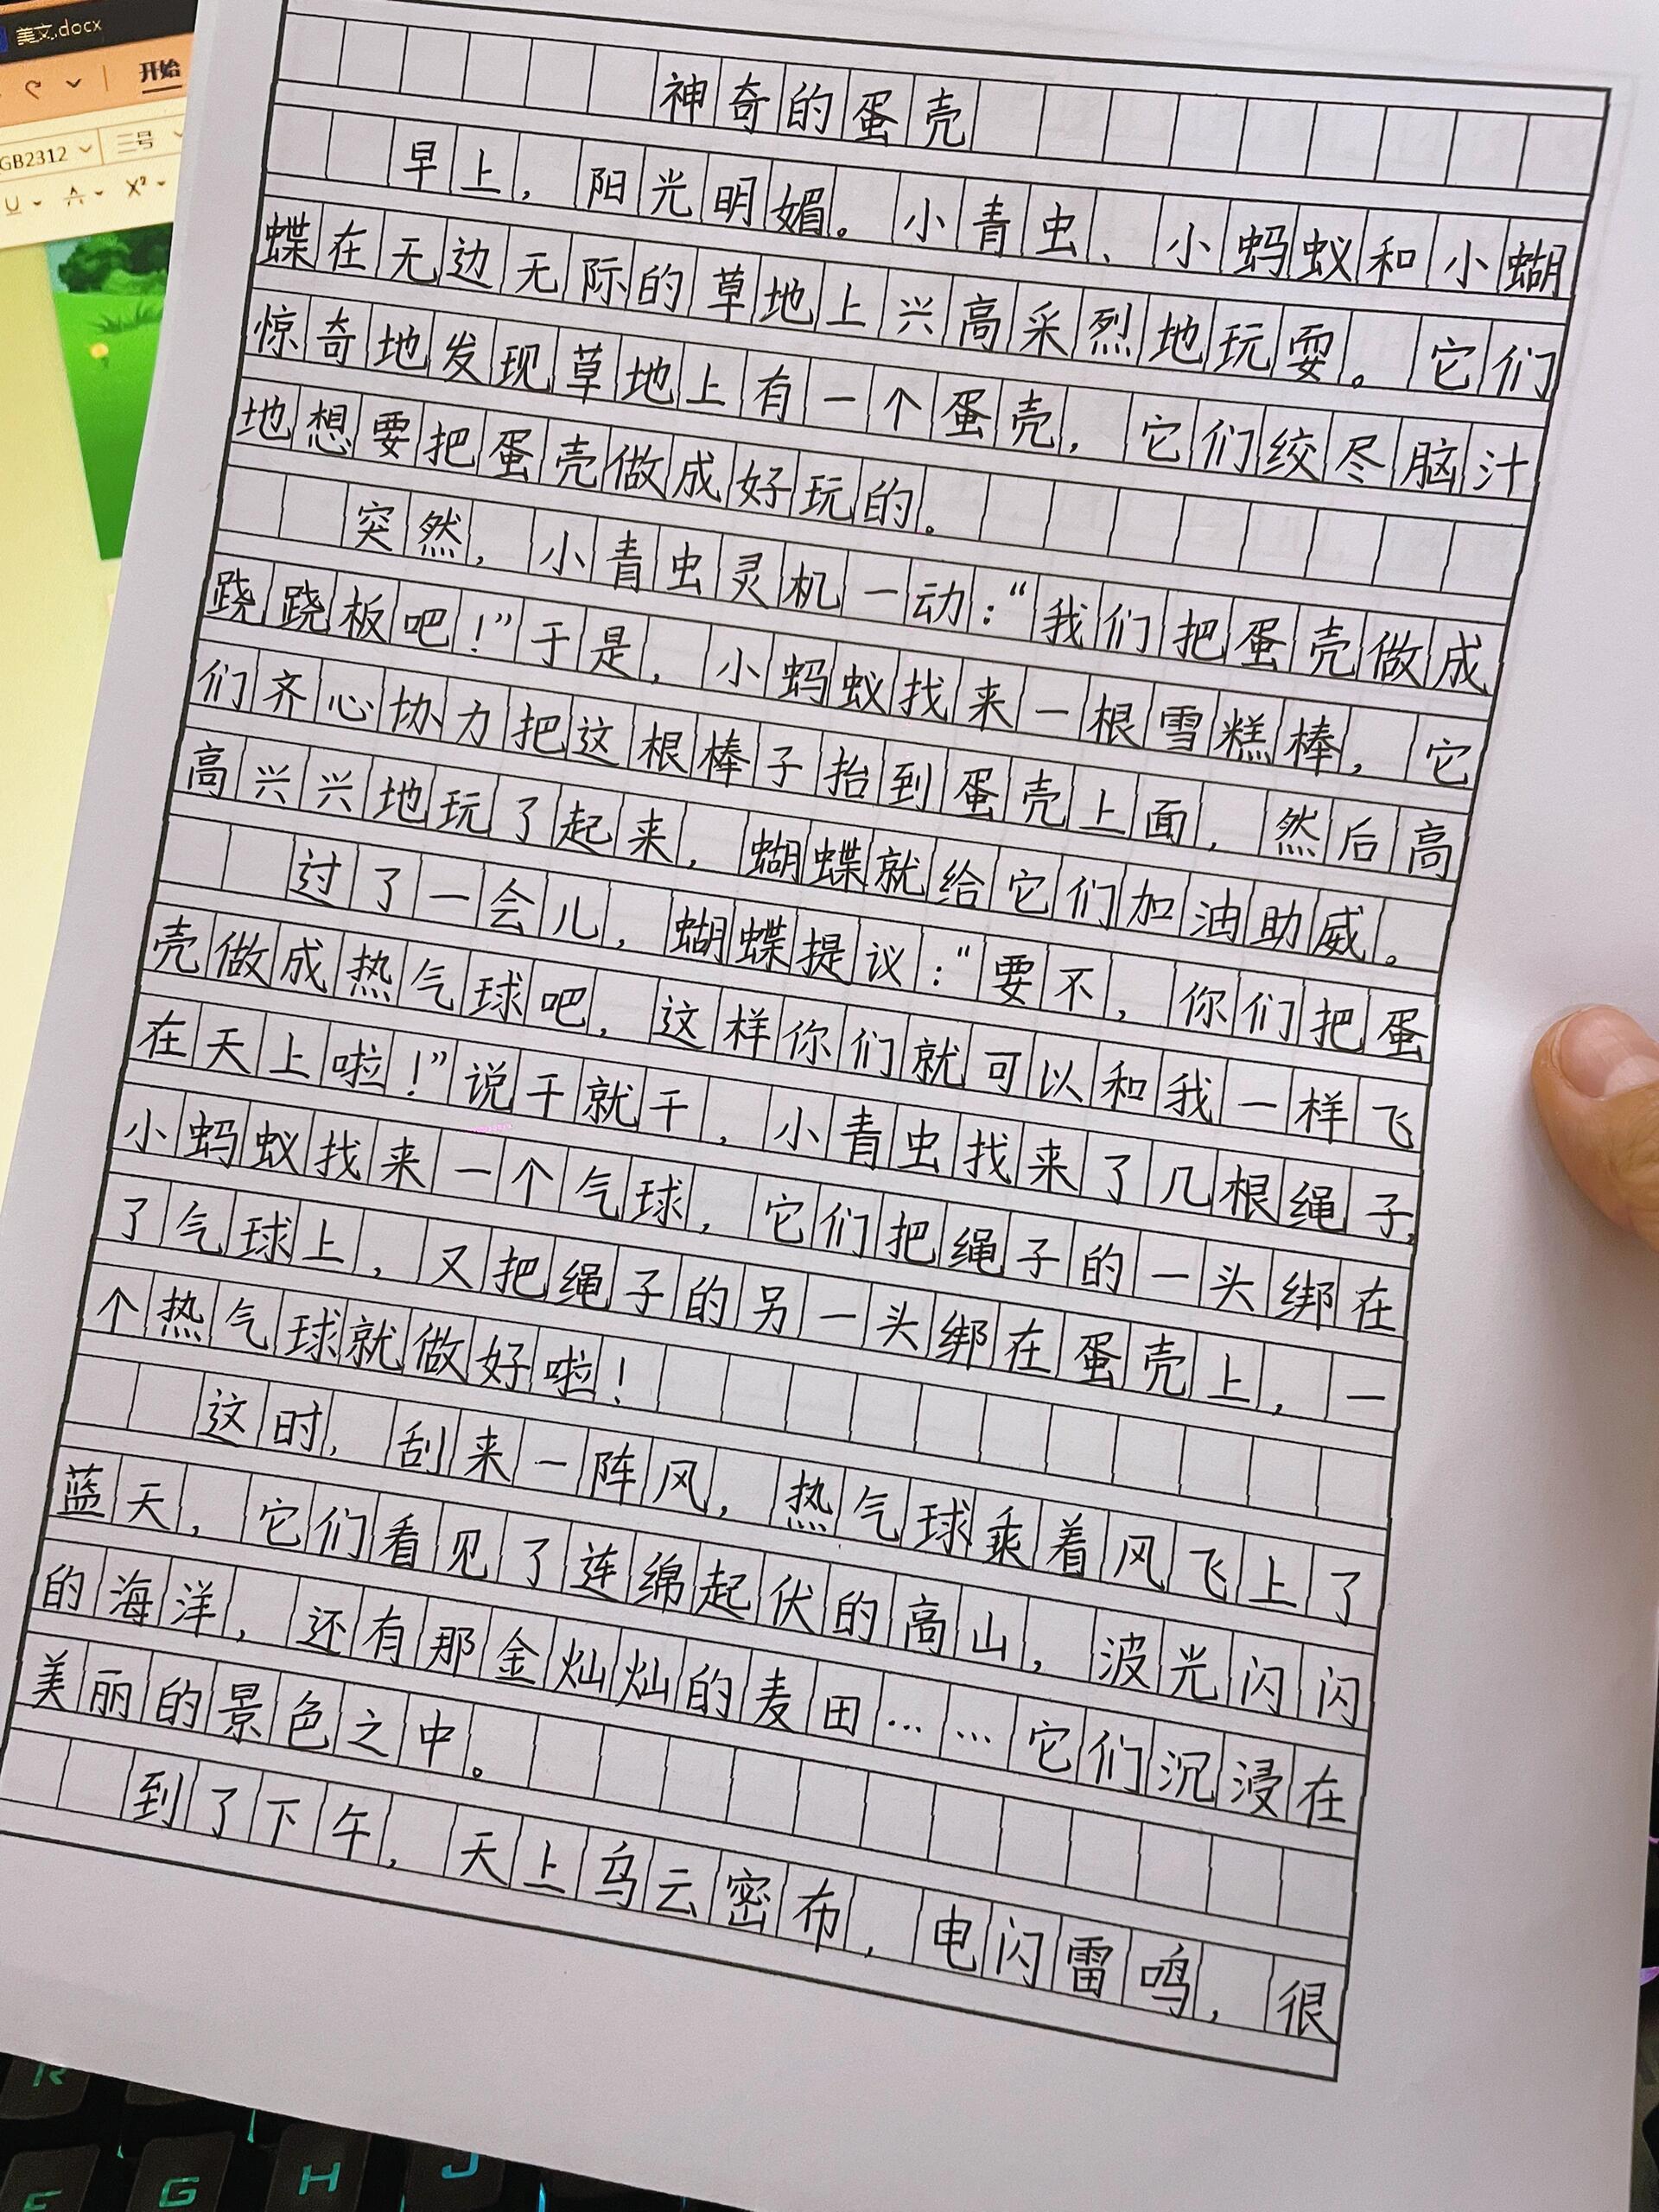 美文.docx
开始
GB2312 三号
U A X²
神奇的蛋壳
早上，阳光明媚。小青虫、小蚂蚁和小蝴
蝶在无边无际的草地上兴高采烈地玩耍。它们
惊奇地发现草地上有一个蛋壳，它们绞尽脑汁
地想要把蛋壳做成好玩的。
突然，小青虫灵机一动：“我们把蛋壳做成
跷跷板吧！”于是，小蚂蚁找来一根雪糕棒，它
们齐心协力把这根棒子抬到蛋壳上面，然后高
高兴兴地玩了起来，蝴蝶就给它们加油助威。
过了一会儿，蝴蝶提议：“要不，你们把蛋
壳做成热气球吧，这样你们就可以和我一样飞
在天上啦！”说干就干，小青虫找来了几根绳子，
小蚂蚁找来一个气球，它们把绳子的一头绑在
了气球上，又把绳子的另一头绑在蛋壳上，一
个热气球就做好啦！
这时，刮来一阵风，热气球乘着风飞上了
蓝天，它们看见了连绵起伏的高山，波光闪闪
的海洋，还有那金灿灿的麦田……它们沉浸在
美丽的景色之中。
到了下午，天上乌云密布，电闪雷鸣，很
R
F G H J